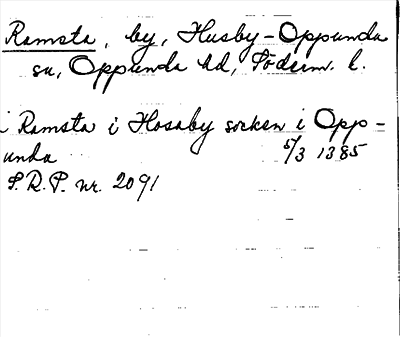 Ramsta, by, Husby-Oppunda
sn, Oppunda hd, Söderm. l.
i Ramsta i Hosaby sorken i Opp-
unda 5/3 1385
S.R.P. nr. 2091